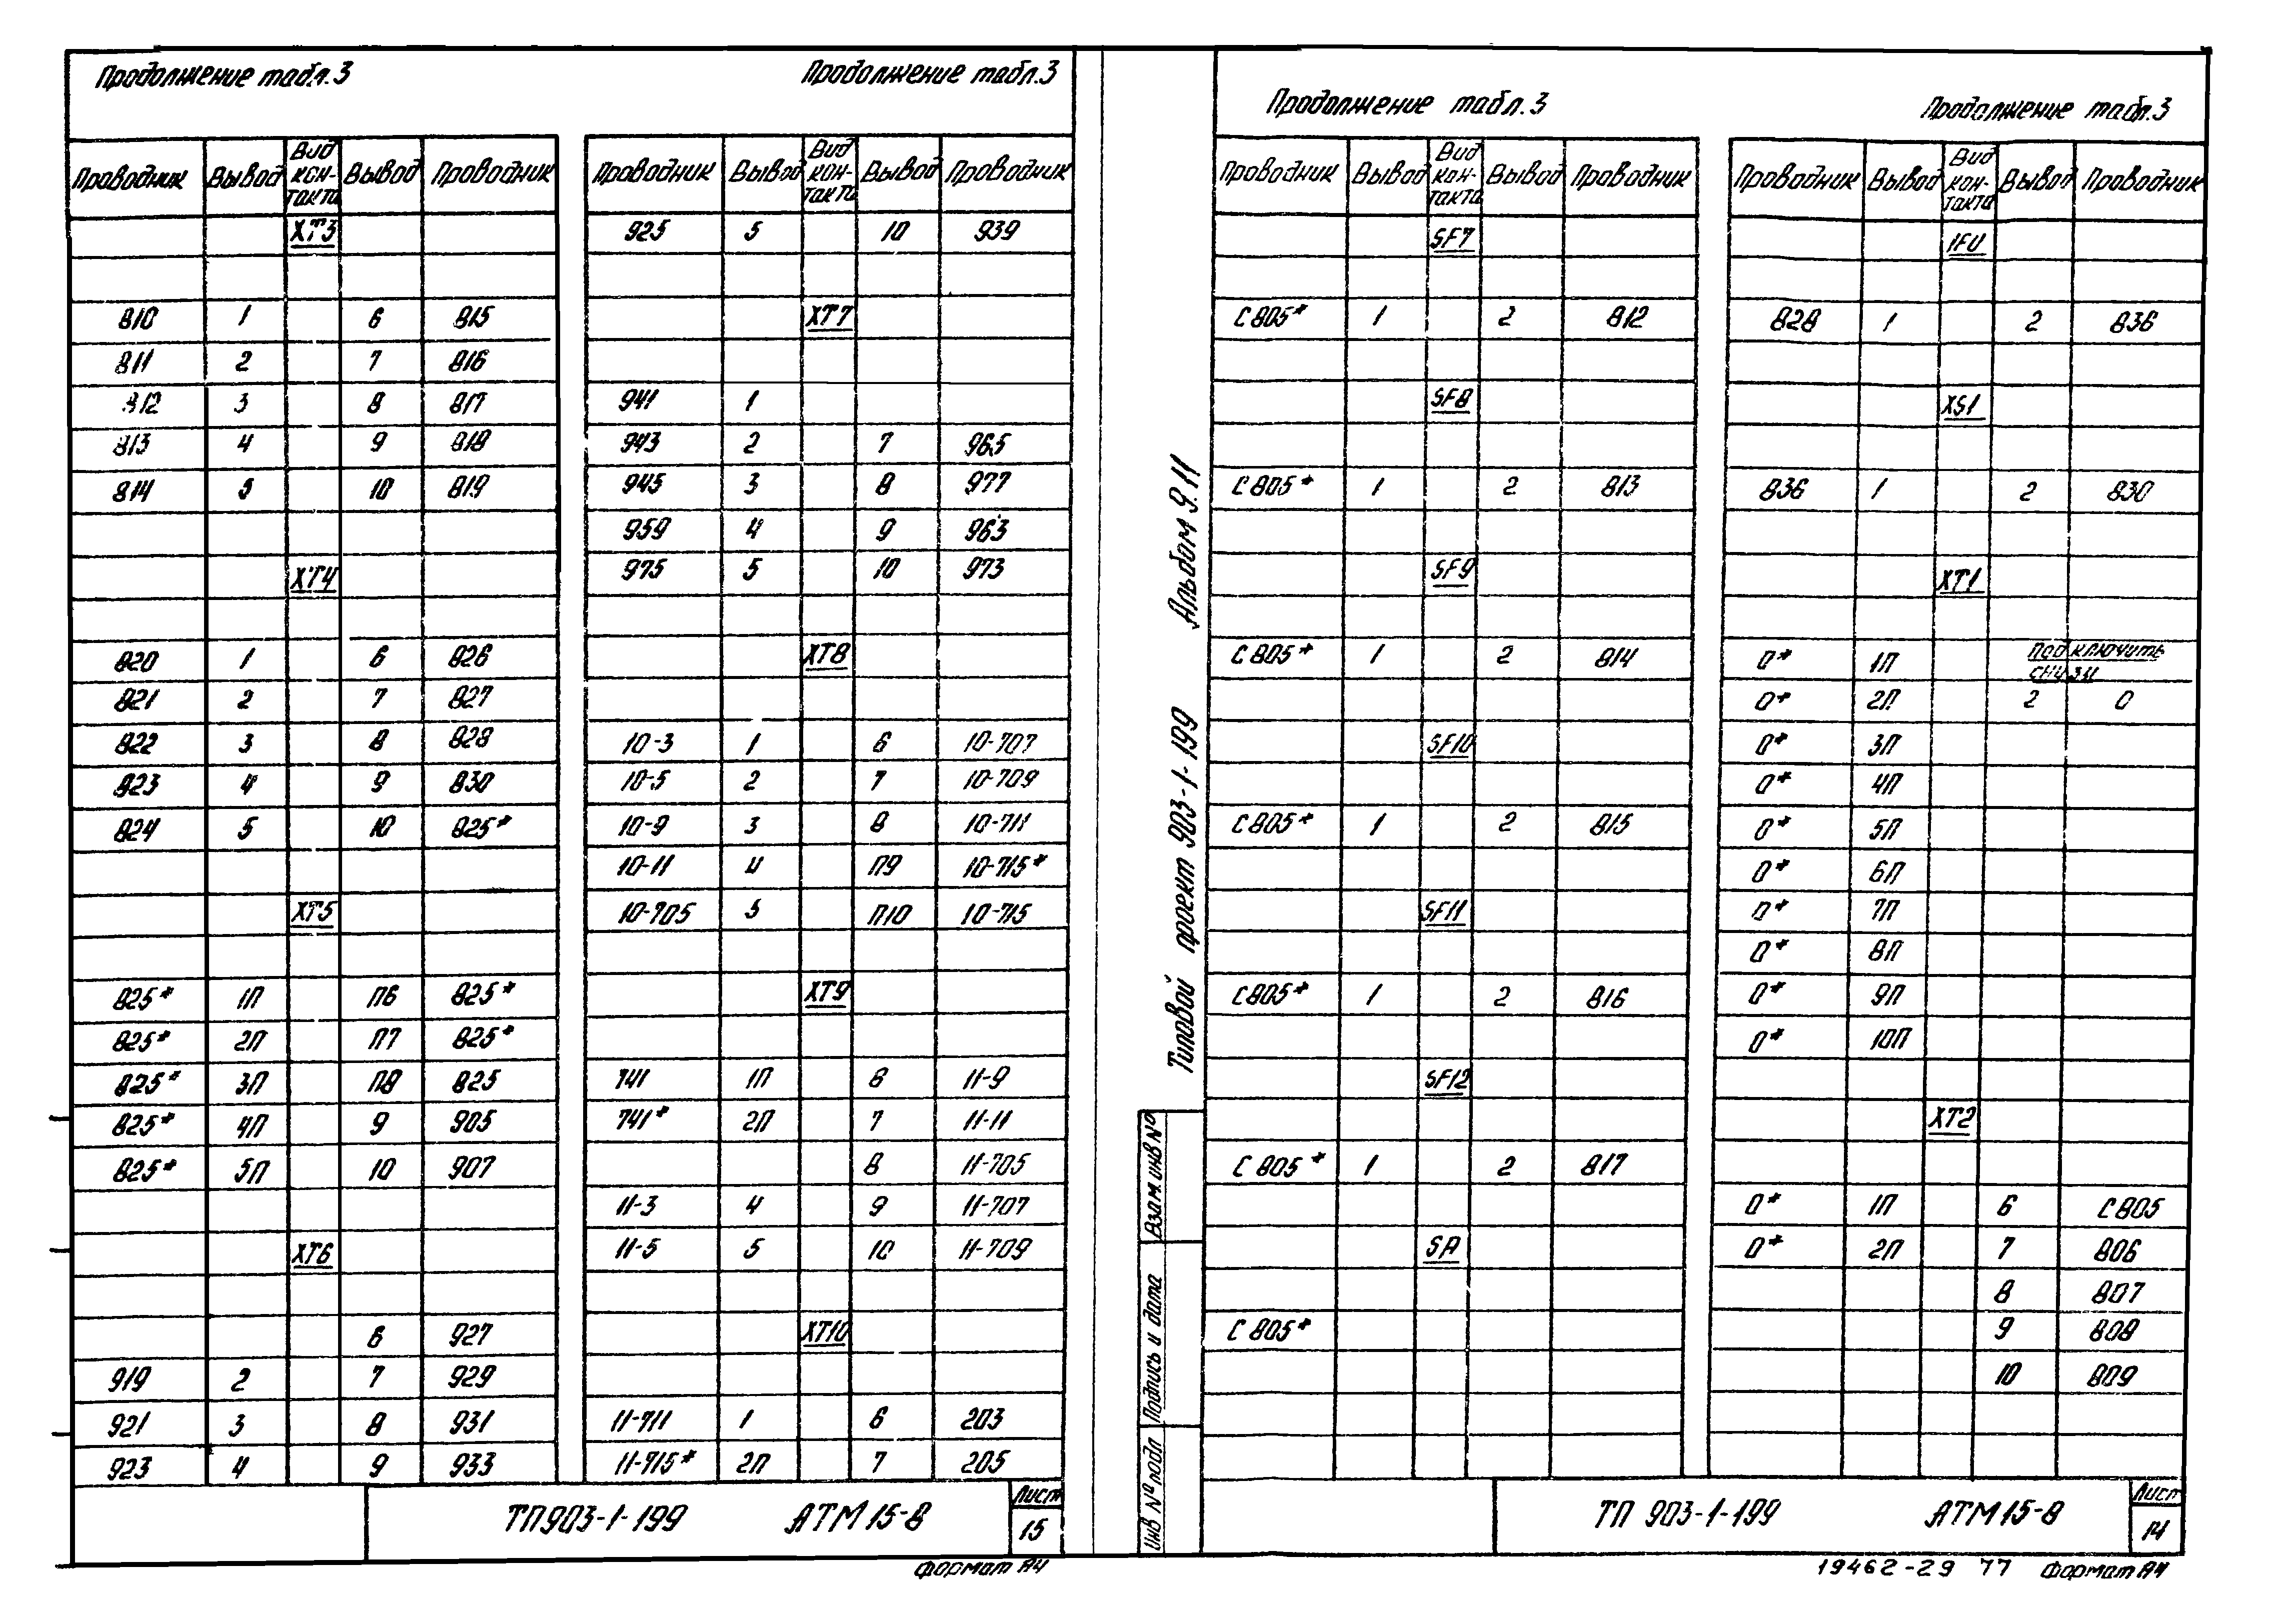 Продолжение табл.3
Проводник Вывод Вид контакта Вывод Проводник
XT3
810 1 6 815
811 2 7 816
812 3 8 817
813 4 9 818
814 5 10 819
XT4
820 1 6 826
821 2 7 827
822 3 8 828
823 4 9 830
824 5 10 825*
XT5
825* 1П П6 825*
825* 2П П7 825*
825* 3П П8 825
825* 4П 9 905
825* 5П 10 907
XT6
6 927
919 2 7 929
921 3 8 931
923 4 9 933
Продолжение табл.3
Проводник Вывод Вид контакта Вывод Проводник
925 5 10 939
XT7
941 1
943 2 7 965
945 3 8 977
959 4 9 963
975 5 10 973
XT8
10-3 1 6 10-707
10-5 2 7 10-709
10-9 3 8 10-711
10-11 4 П9 10-715*
10-705 5 П10 10-715
XT9
741 1П 6 11-9
741* 2П 7 11-11
8 11-705
11-3 4 9 11-707
11-5 5 10 11-709
XT10
11-711 1 6 203
11-715* 2П 7 205
ТП903-1-199 АТМ15-8
Лист
15
Формат А4
Типовой проект 903-1-199 Альбом 9.11
Взам инв №
Подпись и дата
Инв № подл
Продолжение табл.3
Проводник Вывод Вид контакта Вывод Проводник
SF7
C805* 1 2 812
SF8
C805* 1 2 813
SF9
C805* 1 2 814
SF10
C805* 1 2 815
SF11
C805* 1 2 816
SF12
C805* 1 2 817
SA
C805*
Продолжение табл.3
Проводник Вывод Вид контакта Вывод Проводник
1FU
828 1 2 836
XS1
836 1 2 830
XT1
0* 1П Подключить
снизу
0* 2П 2 0
0* 3П
0* 4П
0* 5П
0* 6П
0* 7П
0* 8П
0* 9П
0* 10П
XT2
0* 1П 6 C805
0* 2П 7 806
8 807
9 808
10 809
ТП 903-1-199 АТМ15-8
Лист
14
19462-29 77 Формат А4